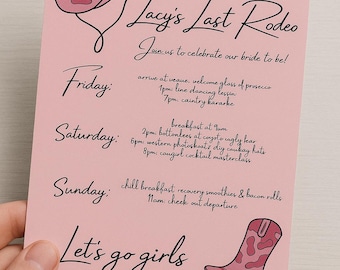 Lacy's Last Rodeo
Join us to celebrate our bride to be!
Friday:
arrive at venue, welcome glass of prosecco
1pm: line dancing lesson
7pm: country karaoke
Saturday:
breakfast at 9am
2pm: bottomless at coyote ugly bar
6pm: western photobooth, diy cowboy hats
8pm: cowgirl cocktail masterclass
Sunday:
chill breakfast: recovery smoothies & bacon rolls
11am: check out departure
Let's go girls